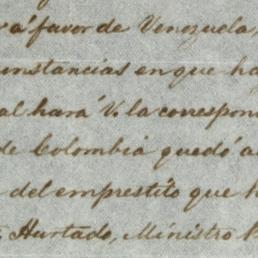 á favor de Venezuela,
unstancias en que ha
al hará V. la correspon
de Colombia quedó a
del emprestito que h
Hurtado, Ministro P